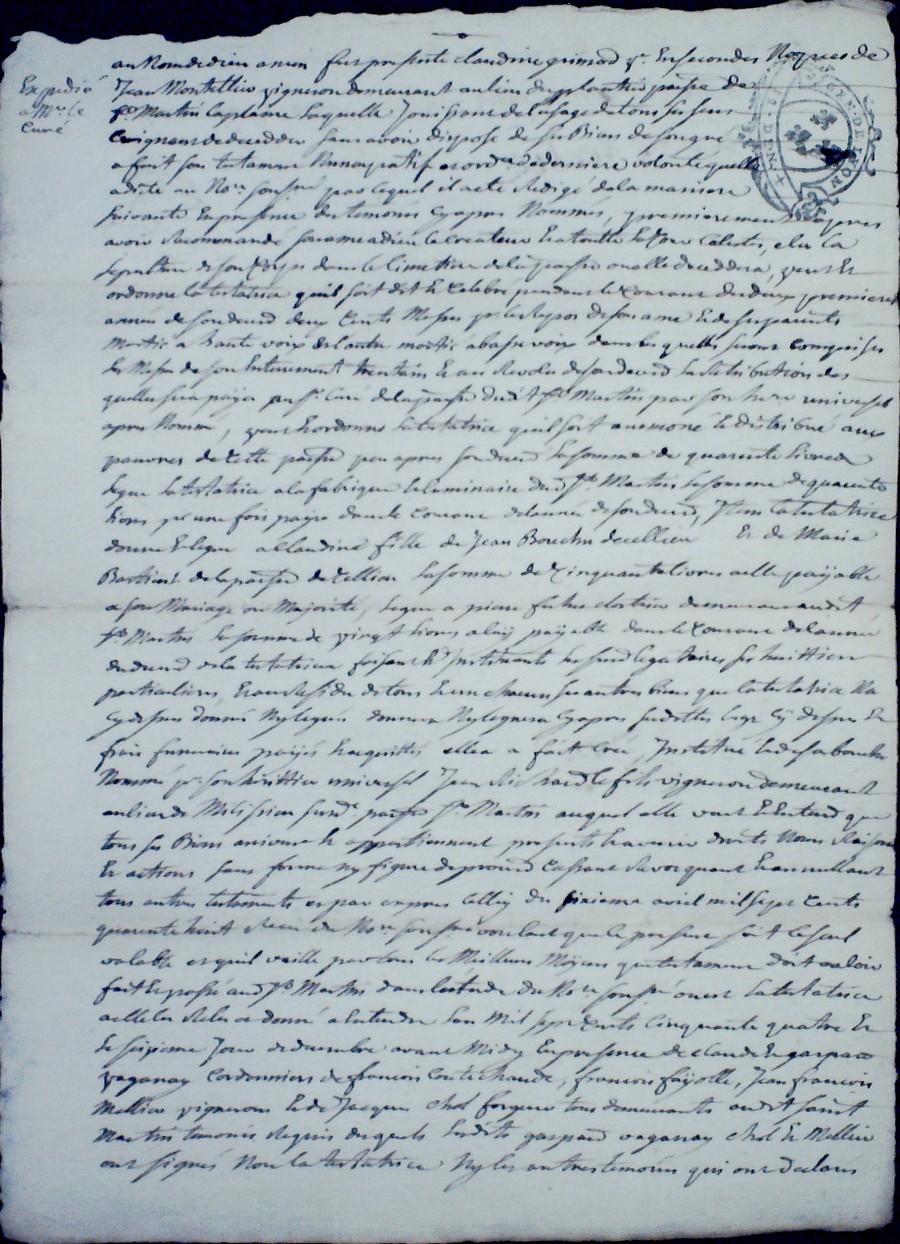 au Nom de dieu amen fut presente claudine grimod v.e En secondes Nopces de
Expedié
a Mr. Le
Curé
Jean Montellier vigneron demeurant au lieu du plantier parsse de
St Martin La plaine Laquelle Jouissant de l'usage de tous ses sens
Craignant de deceder sans avoir disposé de ses Biens de son gré
a fait son testament Nuncupatif et ord.re de derniere volonté quelle
a dicté au No.re sousigné par lequel il a eté Redigé de la maniere
suivante En presence des temoins cy apres Nommés, premierement apres
avoir Recommandé son ame a dieu le createur Et a toutte la Cour Celeste, elu la
sepulture de son Corps dans le Cimetiere de la parsse ou elle decedera, veut Et
ordonne la testatrice quil soit dit Et Celebré pendant le Courant des deux premieres
années de son deced deux Cents Messes pr le Repos de son ame Et de ses parents
moitié a haute voix Et l'autre moitié a basse voix dans les quelles seront Comprises
les Messes de son Enterrement trentain Et an Revolu de son deced la Retribution des
quelles sera payée au Sr Curé de la parsse dudit St Martin par son her.er universel
apres Nommé, veut Et ordonne la testatrice quil soit aumoné Et distribué aux
pauvres de Cette parsse peu apres son deced La somme de quarente Livres
legue la testatrice a la fabrique Et luminaire dud. St Martin la somme de quarente
livres pr une fois payée dans le Courant de l'année de son deced, Item la testatrice
donne Et legue a Claudine fille de Jean Bouchu de cellieu Et de Marie
de la parsse de Cellieu La somme de Cinquante livres a elle payable
a son Mariage ou Majorité, Legue a piere demeurant audit
St Martin la somme de vingt livres a luy payable dans le Courant de l'année
du deced de la testatrice faisant Et Instituant les susd. legataires ses heritiers
particuliers, Et au Residu de tous Et un chacuns ses autres biens que la testatrice Na
cy dessus donné Ny legués donnera Ny leguera cy apres ses dettes legs cy dessus Et
frais funeraires payés Et acquittés elle a fait Créé, Institué Et de sa bouche
Nommé pr son heritier universel Jean Richard le fils vigneron demeurant
au lieu de Milissieu susd.e parsse St Martin auquel elle veut Et Entend que
tous ses Biens arrivent Et appartiennent presents Et avenir droits Noms Raisons
Et actions sans forme ny figure de proced Cassant Revoquant Et annullant
tous autres testaments et par expres Celluy du sixieme avril mil sept Cents
quarente huit Receu du No.re sousigné voulant que le present soit le seul
valable et quil vaille par tous les Meilleurs Moyens que testament doit valoir
fait Et passé aud. St Martin dans l'étude du No.re sousigné ou est la testatrice
a elle lu Relu et donné a Entendre L'an Mil sept Cents Cinquante quatre Et
le seizieme Jour de decembre avant Midy En presence de Claude Et gaspard
vaganay Cordonniers de francois Coutechaude, francois fayolle, Jean francois
Mellier vignerons Et de Jacques Chol forgeur tous demeurants audit saint
Martin temoins Requis desquels lesdits gaspard vaganay Chol Et Mellier
ont signés Non la testatrice Ny les autres temoins qui ont declarés